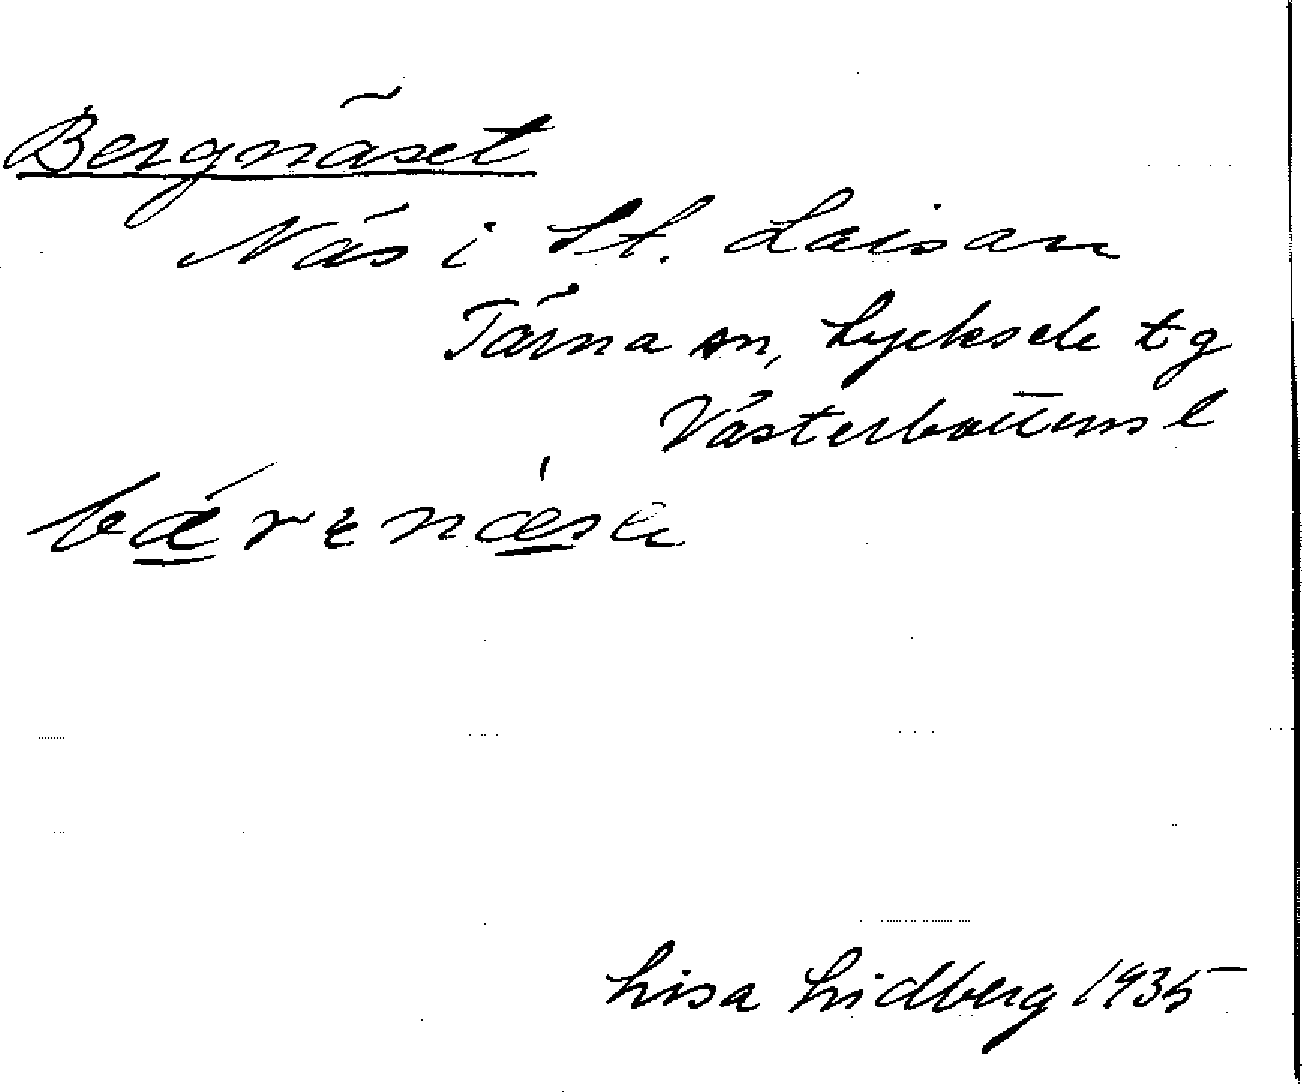 Bergnäset
Näs i St. Laisan
Tärna sn, Lycksele tg
Västerbottens l
bǽrɛnæsɛ
Lisa Lidberg 1935